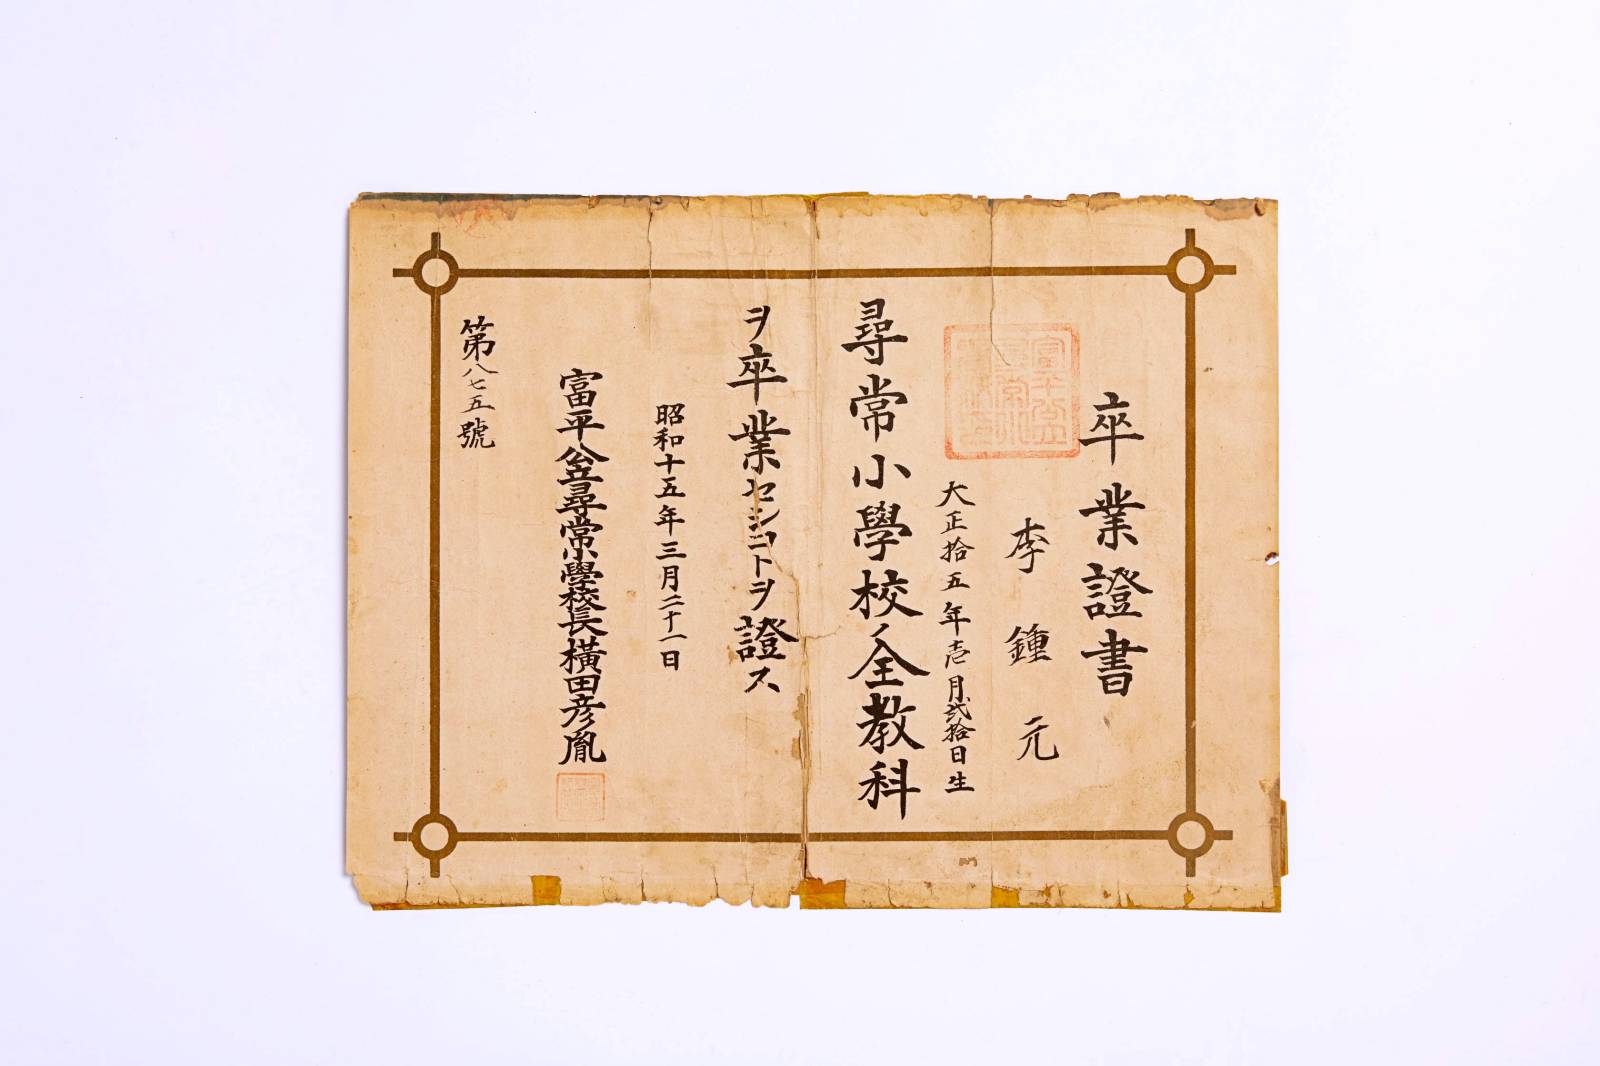 卒業證書
李鍾元
大正拾五年壱月弐拾日生
尋常小學校ノ全教科
ヲ卒業セシコトヲ證ス
昭和十五年三月二十一日
富平公立尋常小學校長横田彦胤
第八七五號